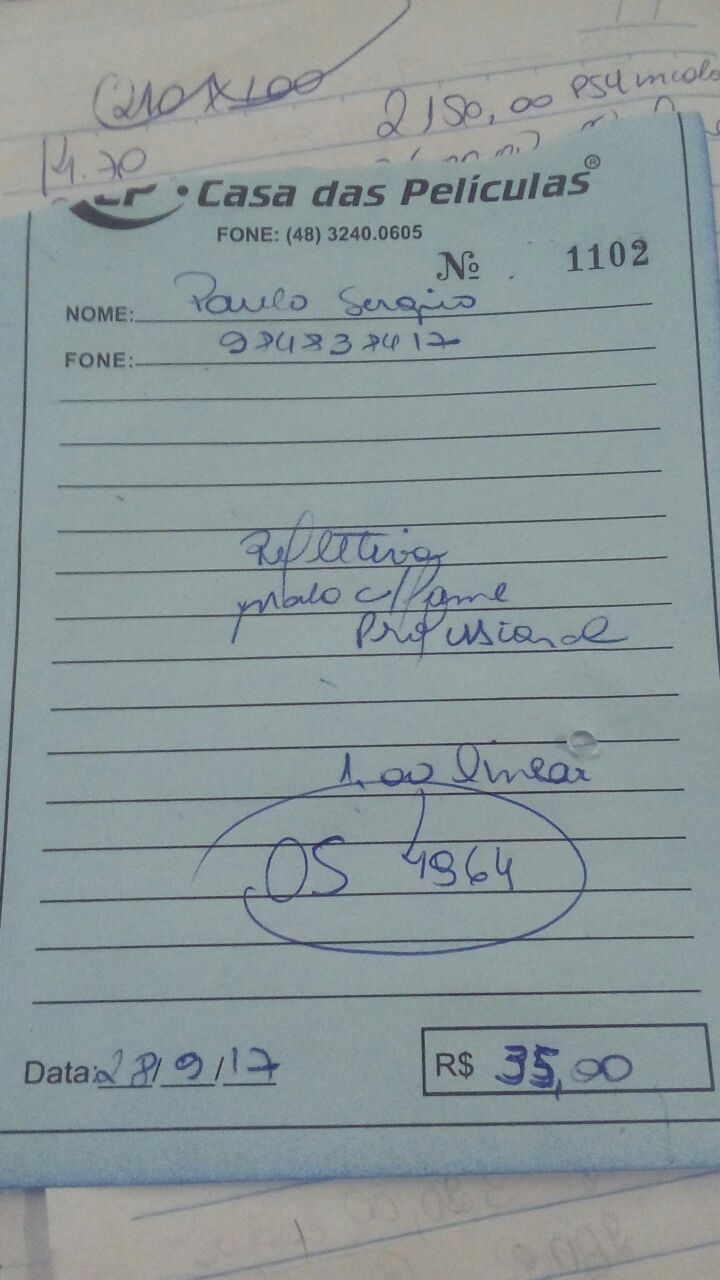 210 x 100
2150,00
14.70
• Casa das Películas®
FONE: (48) 3240.0605
Nº 1102
NOME: Paulo Sergio
FONE: 984838417
Refletiva
c/fame
Profissional
1,00 linear
OS 4964
Data: 28/9/17
R$ 35,00